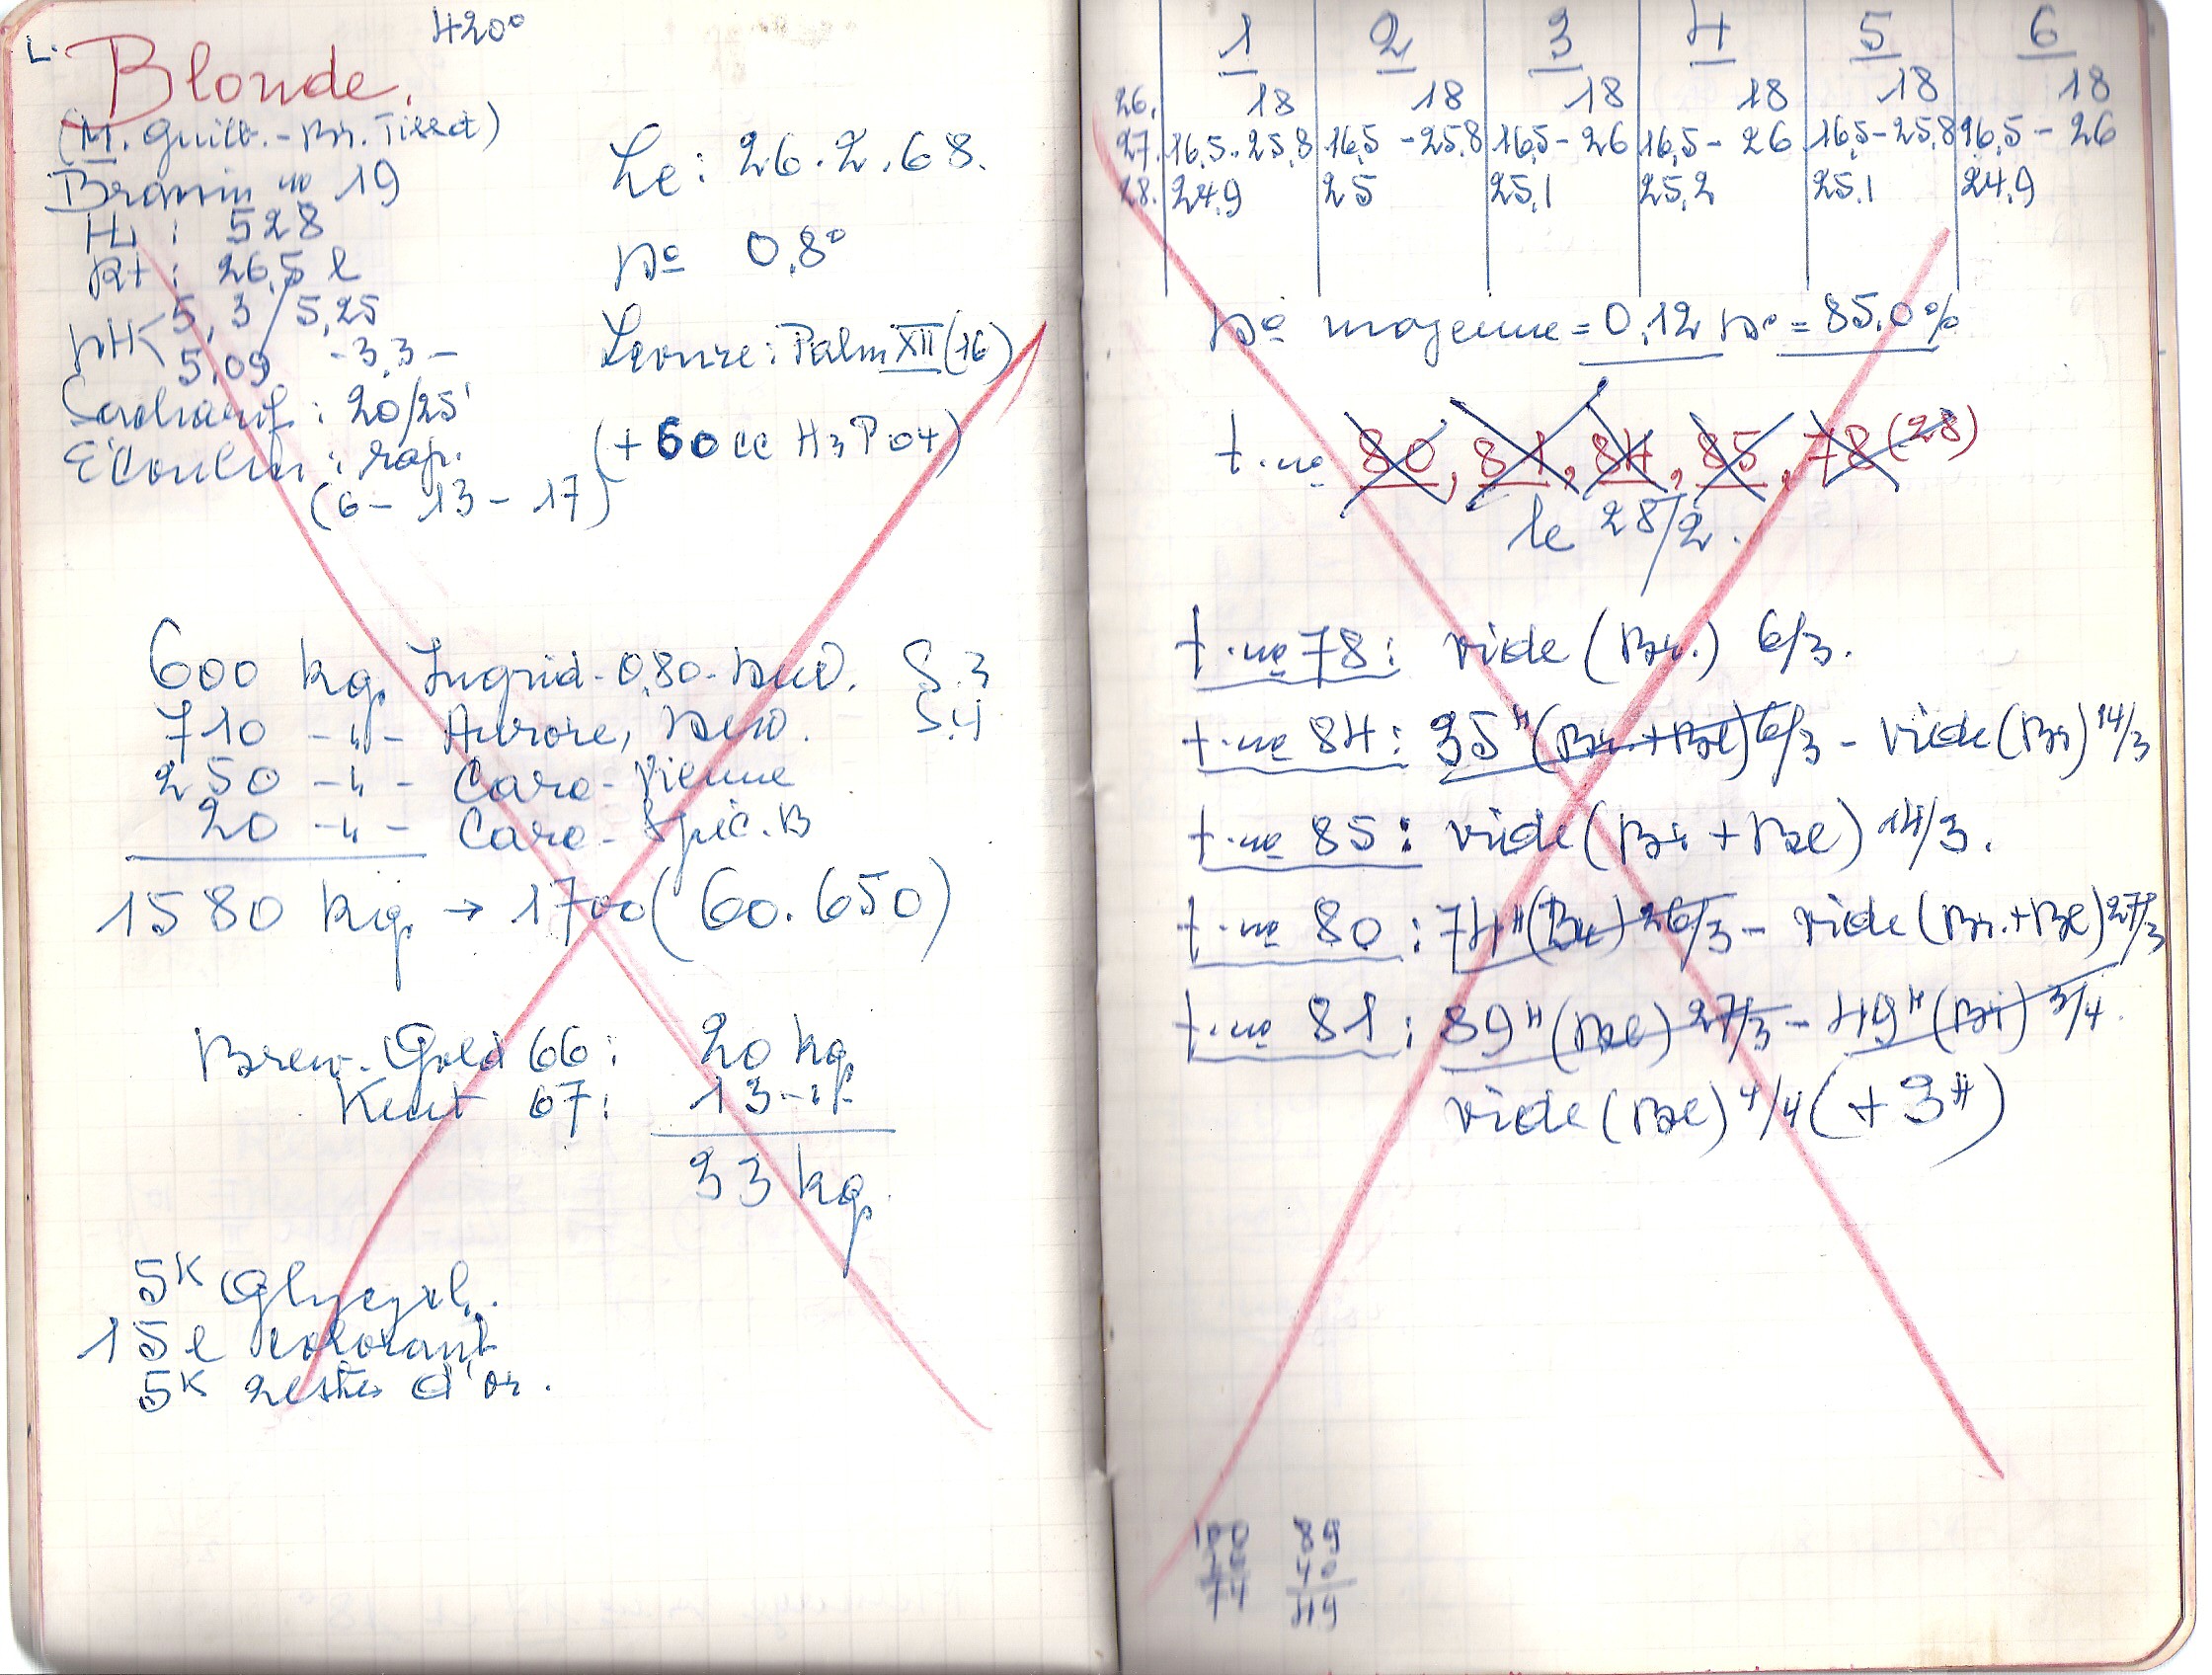 L. 420°
Blonde.
(M. Guilt. - Br. Tilsd)
Brassin no 19
Le: 26.2.68.
Hl : 528
Rt : 26,5 l
D° 0,8°
pH 5,3 / 5,25
5,09 - 3,3 -
Levure: Palm XII (16)
Saccharif : 20/25'
Ecoulem : rap.
(+ 60 cc H3PO4)
(6 - 13 - 17)
600 kg. Ingrid - 0,80 - S.3
710 -"- Aurore, S.4
250 -"- Cara - Vienne
20 -"- Cara - Spéc. B
1580 kg. → 1700 (60.650)
Brew-Gold 66 : 20 kg.
Kent 67 : 13 -"-
33 kg.
5K Glycyrl.
15 l colorant
5K zestes d'or.
1 2 3 4 5 6
26. 18 18 18 18 18 18
27. 16,5 - 25,8 16,5 - 25,8 16,5 - 26 16,5 - 26 16,5 - 25,8 16,5 - 26
28. 24,9 25 25,1 25,2 25,1 24,9
D° moyenne = 0,12 D° = 85,0%
t. no 80, 81, 84, 85, 78 (28)
le 28/2.
t. no 78 : vide (Br.) 6/3.
t. no 84 : 35H (Br. + Bl) 6/3 - vide (Br) 14/3
t. no 85 : vide (Br + Bl) 14/3.
t. no 80 : 74H (Br) 26/3 - vide (Br. + Bl) 27/3
t. no 81 : 89H (Bl) 27/3 - 49H (Br) 3/4.
vide (Bl) 4/4 (+ 3H)
100 89
26 40
74 49